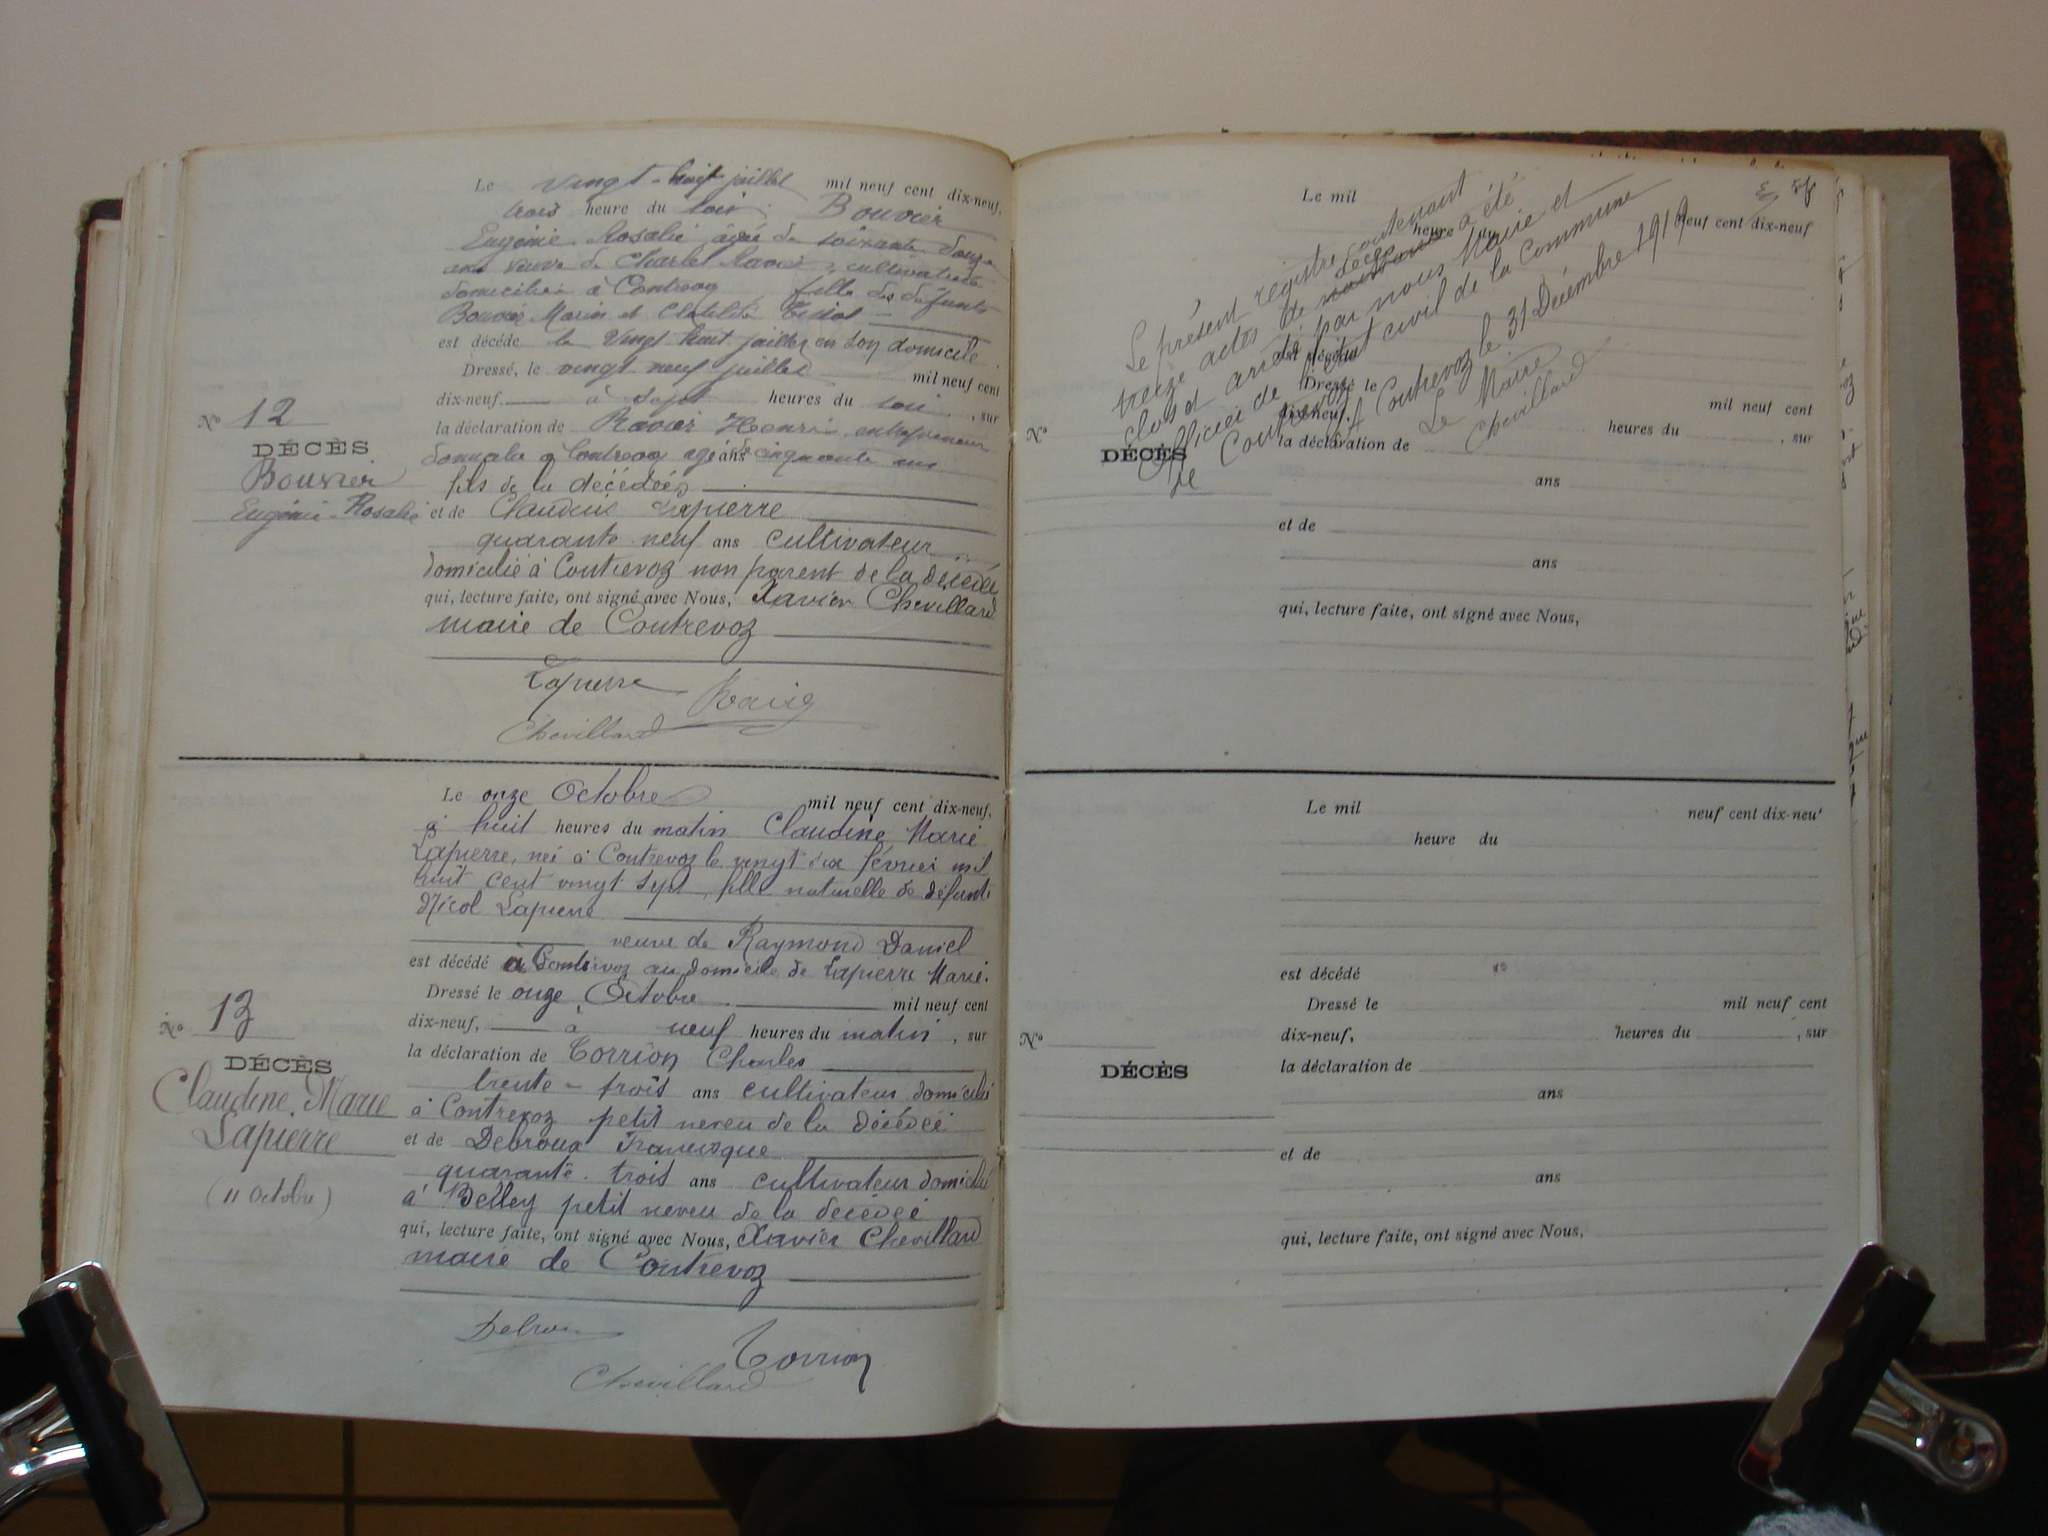 Le vingt-huit juillet mil neuf cent dix-neuf,
trois heure du soir Bouvier
Eugénie Rosalie âgée de soixante douze
ans veuve de Charles cultivatrice
domiciliée à Contrevoz fille des défunts
Bouvier Marin et Clotilde
est décédé le vingt huit juillet en son domicile.
Dressé, le vingt neuf juillet mil neuf cent
dix-neuf à sept heures du soir, sur
la déclaration de Ravier Henri entrepreneur
domicilié à Contrevoz âgé ans de cinquante ans
fils de la décédée
et de Claudius Lapierre
quarante neuf ans cultivateur
domicilié à Contrevoz non parent de la décédée
qui, lecture faite, ont signé avec Nous, Xavier Chevillard
maire de Contrevoz
Lapierre
Chevillard
No 12
DÉCÈS
Bouvier
Eugénie-Rosalie
Le onze Octobre mil neuf cent dix-neuf,
à huit heures du matin Claudine Marie
Lapierre, née à Contrevoz le vingt février mil
huit cent vingt sept, fille naturelle de défunte
Nicol Lapierre
veuve de Raymond Daniel
est décédé à Contrevoz au domicile de Lapierre Marie.
Dressé le onze Octobre mil neuf cent
dix-neuf, à neuf heures du matin, sur
la déclaration de Torrion Charles
trente-trois ans cultivateur domicilié
à Contrevoz petit neveu de la décédée
et de Debroua Francisque
quarante-trois ans cultivateur domicilié
à Belley petit neveu de la décédée
qui, lecture faite, ont signé avec Nous, Xavier Chevillard
maire de Contrevoz
Torrion
Chevillard
No 13
DÉCÈS
Claudine, Marie
Lapierre
(11 Octobre)
Le mil neuf cent dix-neuf
heure du
Le présent registre contenant
treize actes de naissance décès a été
clos et arrêté par nous Maire et
Officier de l'état civil de la Commune
de Contrevoz
A Contrevoz le 31 Décembre 1919
Le Maire
Chevillard
est décédé
Dressé le mil neuf cent
dix-neuf, heures du , sur
la déclaration de
ans
et de
ans
qui, lecture faite, ont signé avec Nous,
No
DÉCÈS
Le mil neuf cent dix-neuf
heure du
est décédé
Dressé le mil neuf cent
dix-neuf, heures du , sur
la déclaration de
ans
et de
ans
qui, lecture faite, ont signé avec Nous,
No
DÉCÈS